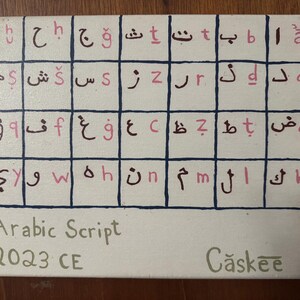 ḫ ح ḥ ج ǧ ث ṯ ت t ب b ا
ṣ ش š س s ز z ر r ذ ḏ د
q ف f غ ġ ع c ظ ẓ ط ṭ ض
ي y و w ه h ن n م m ل l ك
Arabic Script
2023 CE
Căskēē